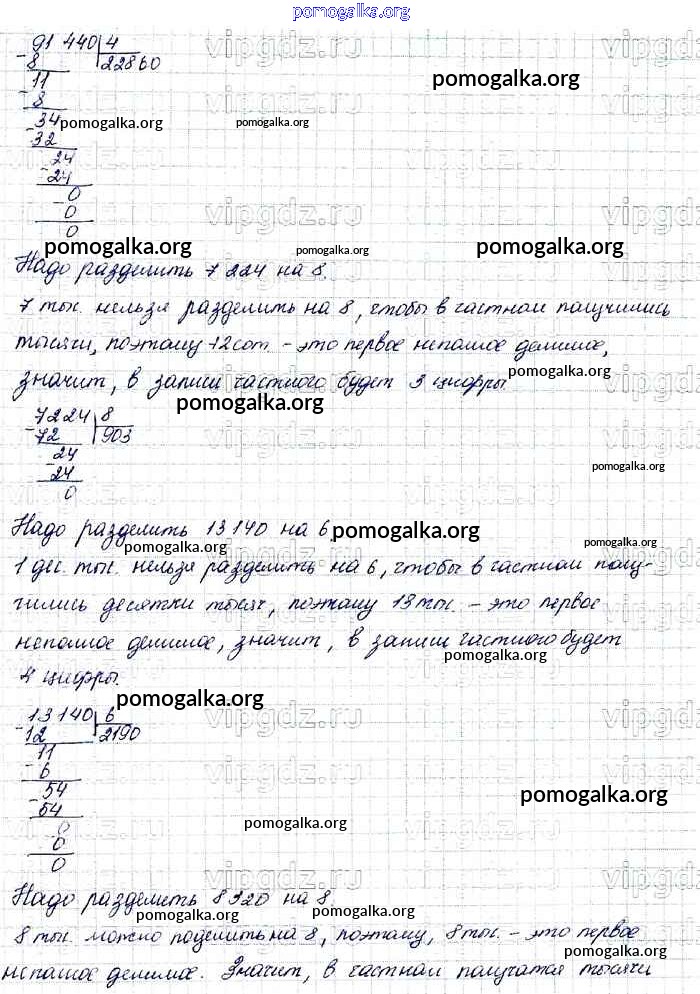 pomogalka.org
91 440 | 4
- 8 22860
11
- 8
- 34
32
- 24
24
- 0
0
0
Надо разделить 7 224 на 8.
7 тыс. нельзя разделить на 8, чтобы в частном получились
тысячи, поэтому 72 сот. - это первое неполное делимое,
значит, в записи частного будет 3 цифры.
- 7224 | 8
72 903
- 24
24
0
Надо разделить 13 140 на 6.
1 дес. тыс. нельзя разделить на 6, чтобы в частном полу-
чились десятки тысяч, поэтому 13 тыс. - это первое
неполное делимое, значит, в записи частного будет
4 цифры.
- 13 140 | 6
12 2190
- 11
6
- 54
54
- 0
0
0
Надо разделить 8 320 на 8.
8 тыс. можно поделить на 8, поэтому, 8 тыс. - это первое
неполное делимое. Значит, в частном получатся тысячи